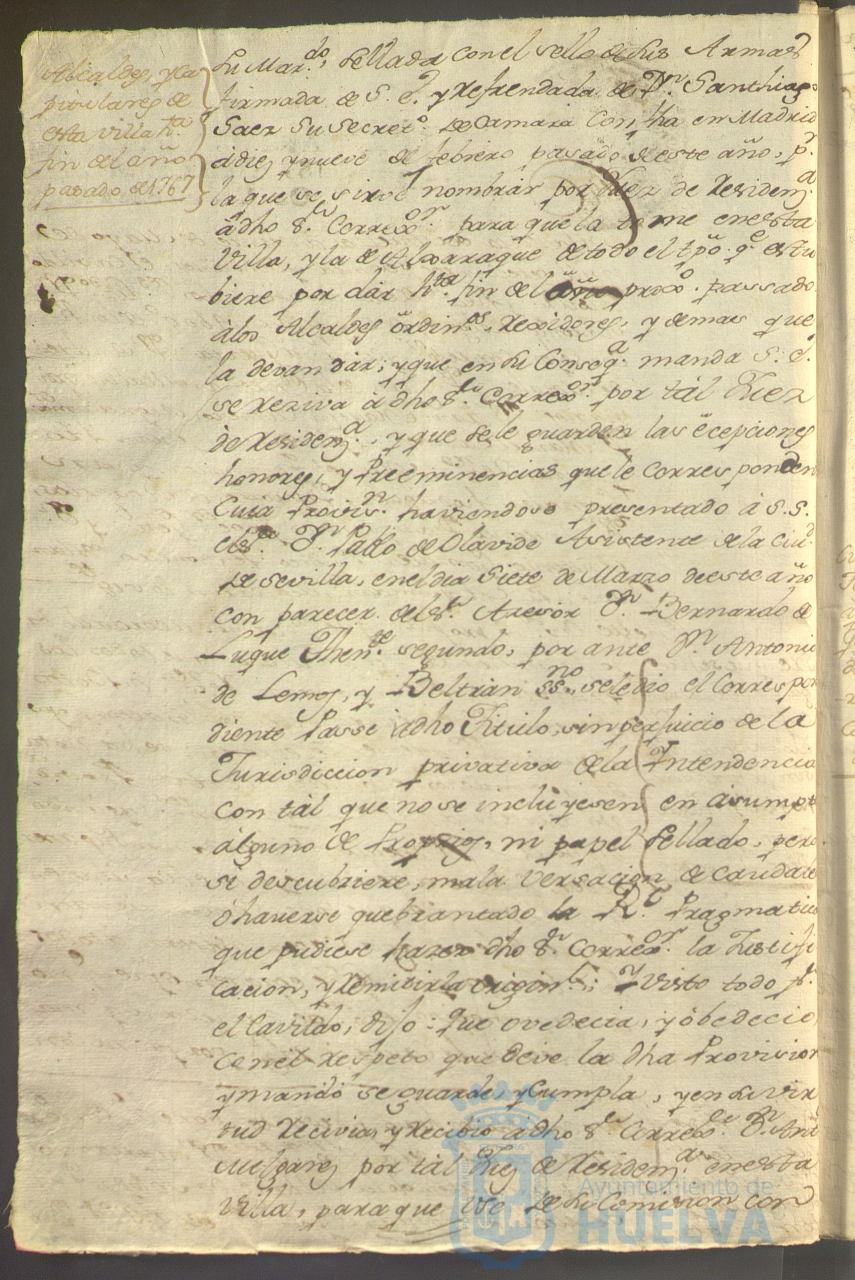 Alcaldes, y Ca
pitulares de
esta villa hta
fin del año
pasado de 1767
su Mardo, sellada con el sello de sus Armas
firmada de S. E. y Refrendada de Dn Santhiago
Saez su Secreto. de Camara con fha en Madrid
á diez y nueve de febrero pasado de este año, pr
la que se sirve nombrar por Juez de Residena
á dho Sr. Correxor. para que la tome en esta
villa, y la de Aljaraque de todo el tpo. qe estu
biere por dár hta fin del año proxo. passado
álos Alcaldes ordinos, Rexidores, y demas que
la devan dár; y que en su Conseqa manda S. E.
se Reziva á dho Sr Correxor. por tál Juez
de Residena, y que se le guarden las ecepciones
honores, y Preeminencias que le corresponden
Cuia Provisn. haviendose presentado á S. S.
el Sr. Dn. Pablo de Olavide Asistente de la ciud
de Sevilla, en el dia Siete de Marzo de este año
con parecer del Sr Asesor Dn Bernardo de
Luque Thente. segundo, por ante Dn Antonio
de Lemos, y Beltran ssno. se le dio el Corres pon
diente Passe á dho Titulo, sin perjuicio de la
Jurisdiccion privativa de la Intendencia
con tál que no se incluyesen en ásumpto
álguno de Propios, ni papel Sellado, pero
si descubriere, mala versacion de caudales
ó haverse quebrantado la Rl. Pragmatica
que pudiese hazer dho Sr Correxor. la Justifi
cacion, y Remitirla originl.; Y visto todo pr
el Cavildo, dijo: Que ovedecia, y óbedecio
con el Respeto que deve la dha Provision
y mandó se guarde, y Cumpla, y en su vir
tud Recivia, y Recibio á dho Sr Correxor Dn Anto
Melgarej por tál Juez de Residena en esta
villa, para que use de su Comision con
Ayuntamiento de
HUELVA